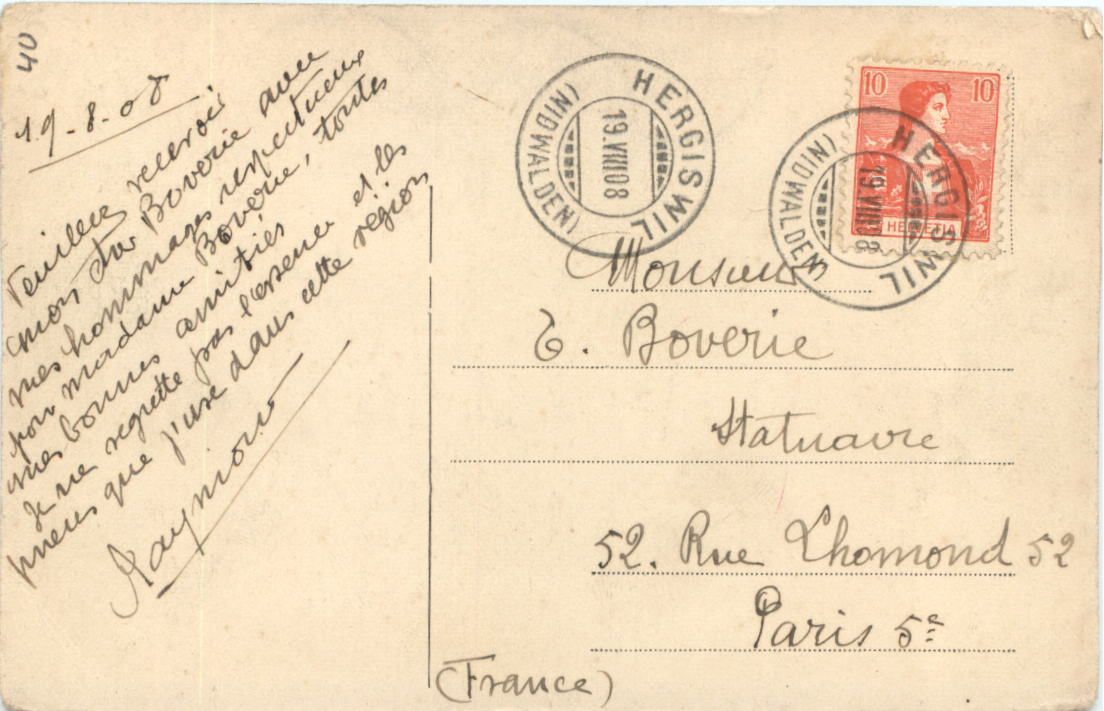 40
19-8-08
Veuillez recevoir
mon cher Boverie avec
mes hommages respectueux
pour madame Boverie, toutes
mes bonnes amitiés
Je ne regrette pas l'essence et les
pneus que j'use dans cette région
Raymond
HERGISWIL
(NIDWALDEN)
19.VIII.08
10 10
HELVETIA
HERGISWIL
(NIDWALDEN)
19.VIII.08
Monsieur
E. Boverie
Statuaire
52. Rue Lhomond 52
Paris 5e
(France)